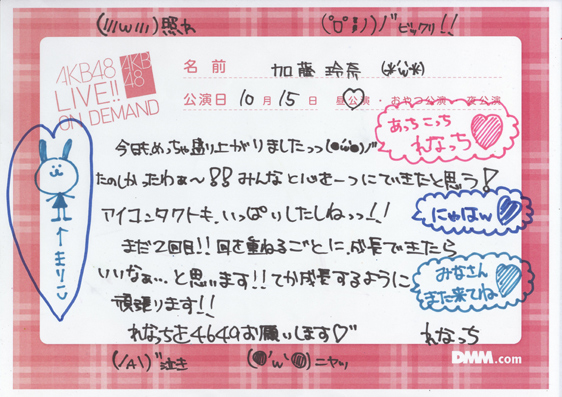 (///w///)照れ
(ﾟロﾟ;)ﾉﾞ ビックリ!!
AKB48
LIVE!!
ON DEMAND
AKB
48
名前 加藤 玲奈 (*'ω'*)
公演日 10月15日 昼公演・おやつ公演・夜公演
あっちこっち
れなっち
今日も、めっちゃ盛り上がりましたっっ(●'ω'●)ﾉﾞ
たのしかったわぁ〜!! みんなと心を一つにできたと思う!
アイコンタクトも、いっぱいしたしねっっ!!
にゃはw
まだ2回目!! 回を重ねるごとに、成長できたら
いいなぁ…と思います!! てか成長するように
頑張ります!!
みなさん
また来てね
れなっちを4649お願いします♡
れなっち
↑まりこ
(/A\)ﾞ泣き
(●'w'●)ニヤッ
DMM.com